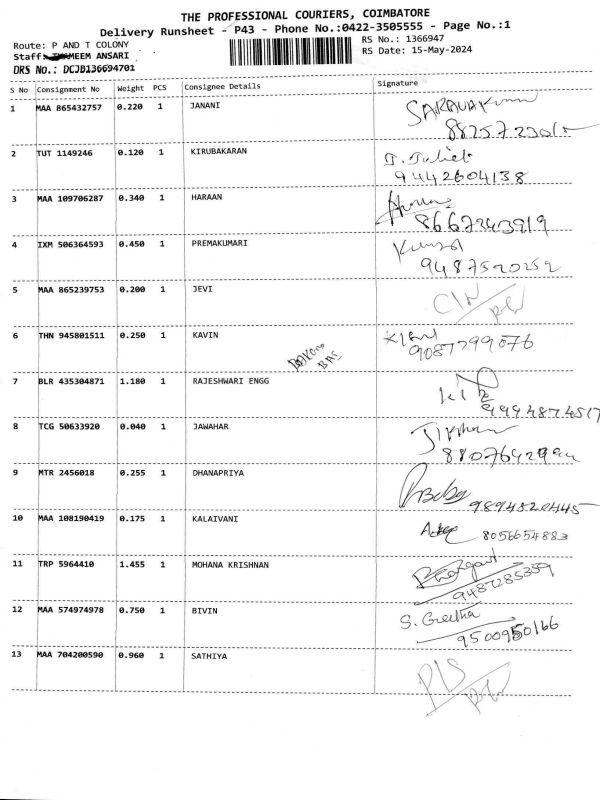 THE PROFESSIONAL COURIERS, COIMBATORE
Delivery Runsheet - P43 - Phone No.:0422-3505555 - Page No.:1
Route: P AND T COLONY
RS No.: 1366947
Staff: MEEM ANSARI
RS Date: 15-May-2024
DRS No.: DCJB136694701
S No Consignment No Weight PCS Consignee Details Signature
1 MAA 865432757 0.220 1 JANANI
2 TUT 1149246 0.120 1 KIRUBAKARAN
9442604138
3 MAA 109706287 0.340 1 HARAAN
8667343919
4 IXM 506364593 0.450 1 PREMAKUMARI
9487520252
5 MAA 865239753 0.200 1 JEVI
6 THN 945801511 0.250 1 KAVIN
9087799076
7 BLR 435304871 1.180 1 RAJESHWARI ENGG
9994874517
8 TCG 50633920 0.040 1 JAWAHAR
9 MTR 2456018 0.255 1 DHANAPRIYA
9894820445
10 MAA 108190419 0.175 1 KALAIVANI
8056654883
11 TRP 5964410 1.455 1 MOHANA KRISHNAN
9487285359
12 MAA 574974978 0.750 1 BIVIN
S. Geetha
9500950166
13 MAA 704200590 0.960 1 SATHIYA